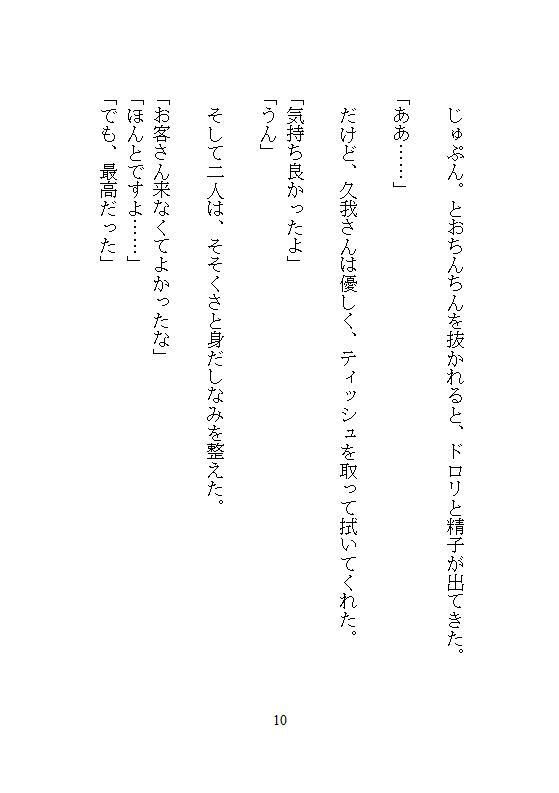 じゅぷん。とおちんちんを抜かれると、ドロリと精子が出てきた。
「ああ……」
だけど、久我さんは優しく、ティッシュを取って拭いてくれた。
「気持ち良かったよ」
「うん」
そして二人は、そそくさと身だしなみを整えた。
「お客さん来なくてよかったな」
「ほんとですよ……」
「でも、最高だった」
10